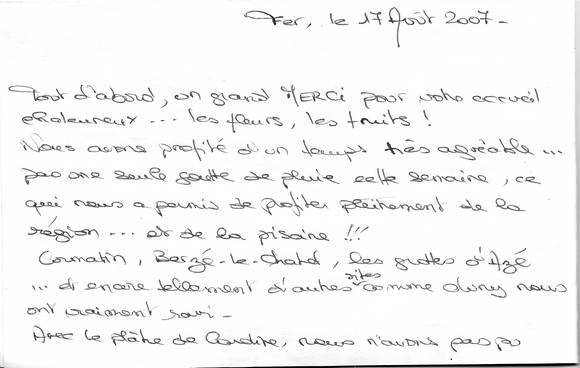 Fer, le 17 Août 2007 -
Tout d'abord, un grand MERCI pour votre accueil
chaleureux ... les fleurs, les fruits !
Nous avons profité d'un temps très agréable ...
pas une seule goutte de pluie cette semaine, ce
qui nous a permis de profiter pleinement de la
région ... et de la piscine !!!
Cormatin, Berzé-le-Chatel, les grottes d'Azé
... et encore tellement d'autres sites comme Cluny nous
ont vraiment ravi -
Avec le plâtre de Caroline, nous n'avons pas pu